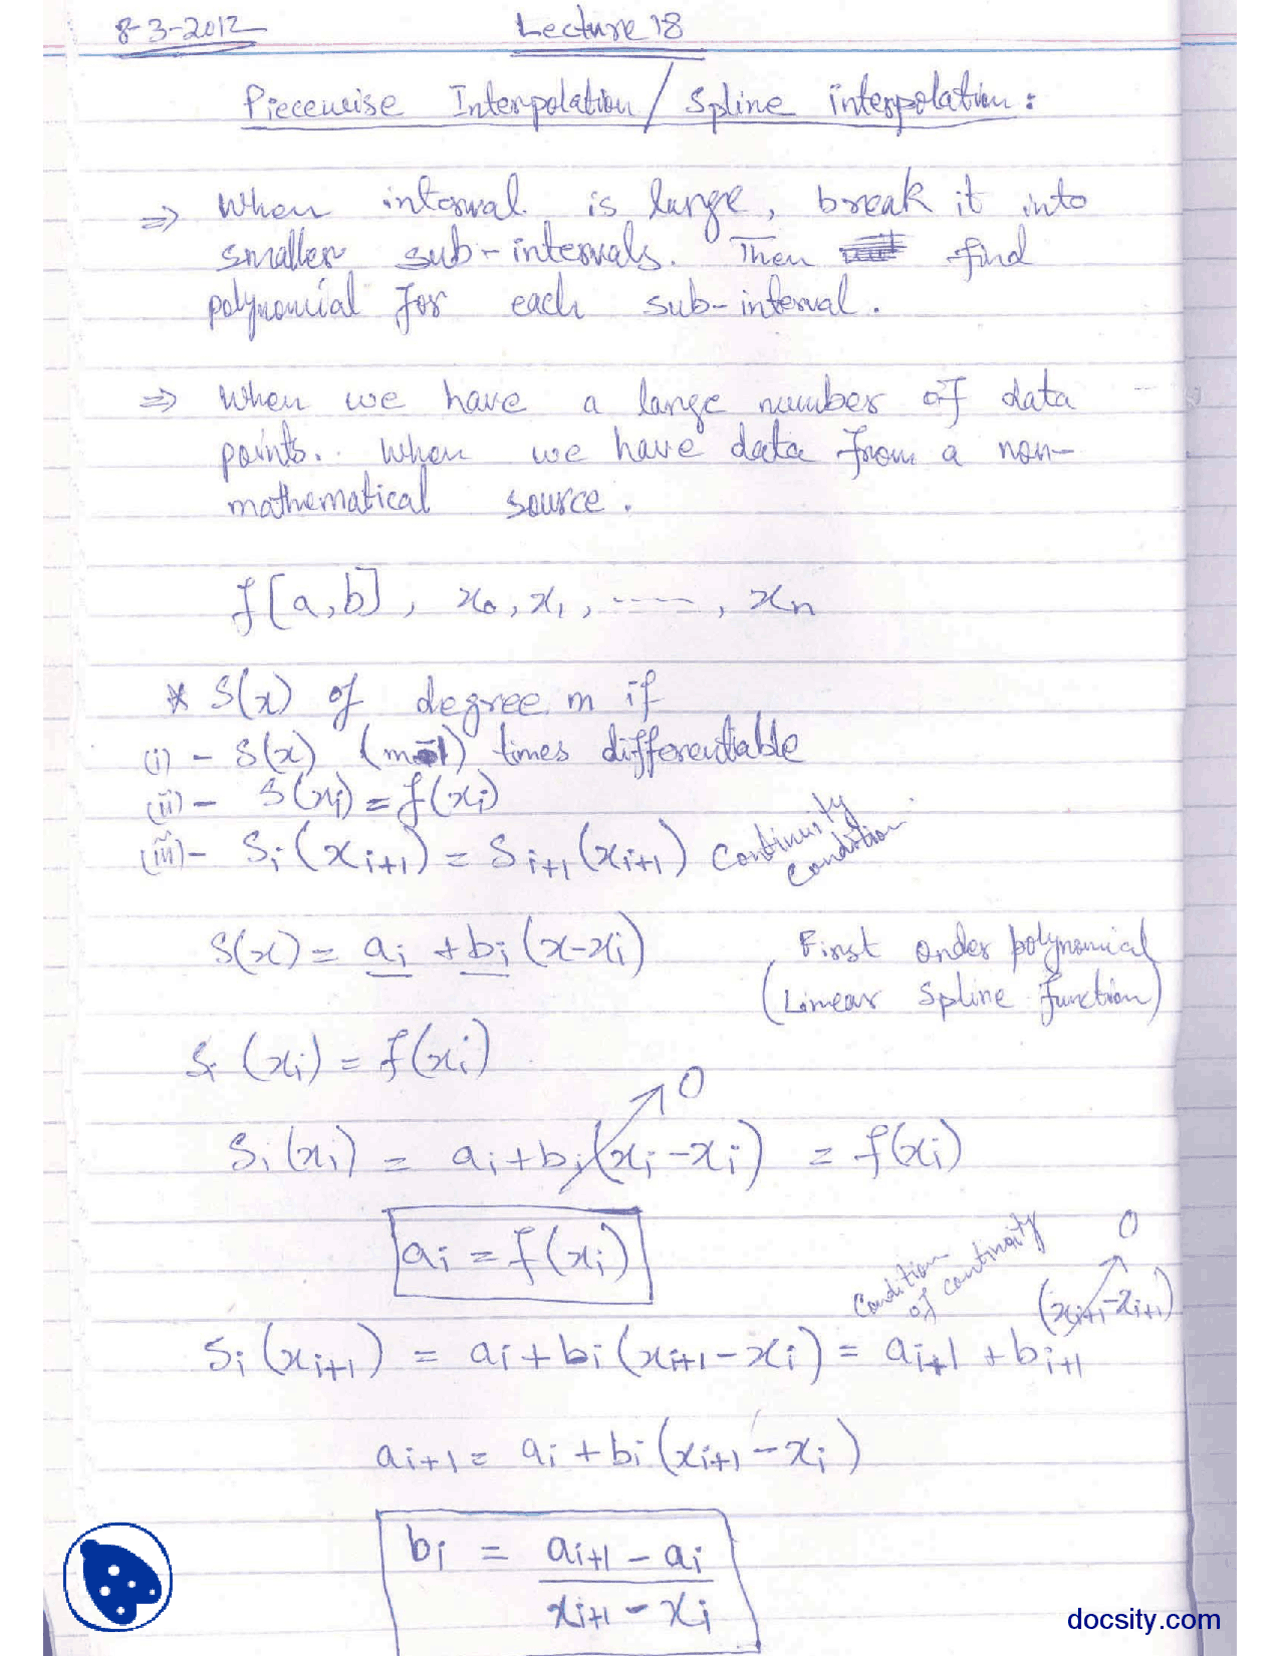 8-3-2012 Lecture 18
Piecewise Interpolation / Spline interpolation:
⇒ When interval is large, break it into
smaller sub-intervals. Then find
polynomial for each sub-interval.
⇒ When we have a large number of data
points. When we have data from a non-
mathematical source.
f[a,b], x₀, x₁, ------, xₙ
* S(x) of degree m if
(i) - S(x) (m-1) times differentiable
(ii) - S(xᵢ) = f(xᵢ)
(iii) - Sᵢ(xᵢ₊₁) = Sᵢ₊₁(xᵢ₊₁) Continuity Condition
S(x) = aᵢ + bᵢ(x-xᵢ) First order polynomial
(Linear Spline function)
Sᵢ(xᵢ) = f(xᵢ)
0
Sᵢ(xᵢ) = aᵢ + bᵢ(xᵢ - xᵢ) = f(xᵢ)
aᵢ = f(xᵢ)
Condition of continuity
0
(xᵢ₊₁ - xᵢ₊₁)
Sᵢ(xᵢ₊₁) = aᵢ + bᵢ(xᵢ₊₁ - xᵢ) = aᵢ₊₁ + bᵢ₊₁
aᵢ₊₁ = aᵢ + bᵢ(xᵢ₊₁ - xᵢ)
bᵢ = (aᵢ₊₁ - aᵢ) / (xᵢ₊₁ - xᵢ)
docsity.com